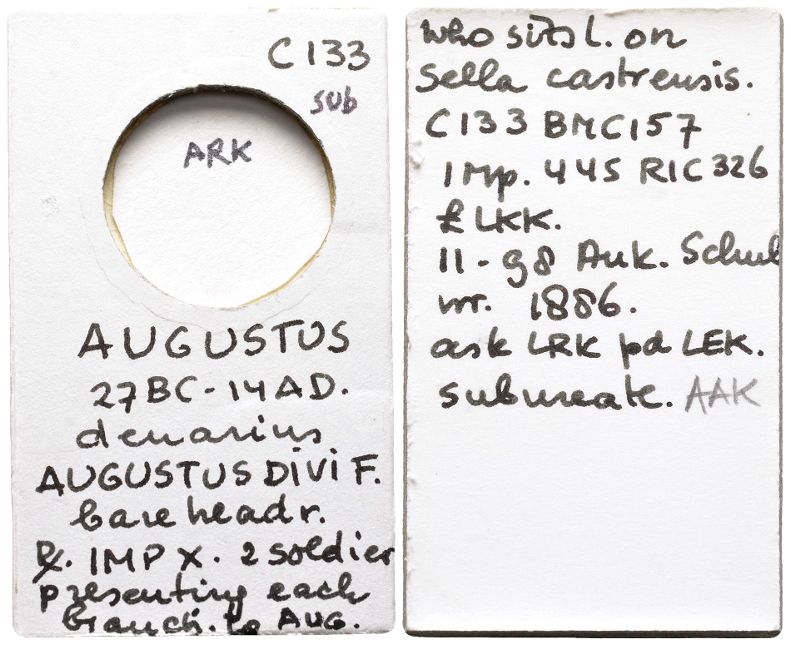 C 133
sub
ARK
AUGUSTUS
27 BC - 14 AD.
denarius
AUGUSTUS DIVI F.
bare head r.
R. IMP X. 2 soldier
presenting each
branch. to AUG.
who sits l. on
Sella castrensis.
C 133 BMC 157
Imp. 445 RIC 326
£ LKK.
11 - 98 Auk. Schul
nr. 1886.
ask LRK pd LEK.
subaerate. AAK